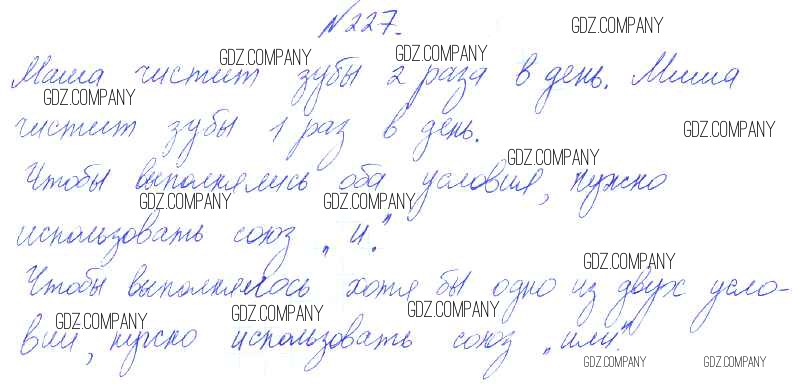 №227.
Маша чистит зубы 2 раза в день. Миша
чистит зубы 1 раз в день.
Чтобы выполнялись оба условия, нужно
использовать союз „и".
Чтобы выполнялось хотя бы одно из двух усло-
вий, нужно использовать союз „или".
GDZ.COMPANY
GDZ.COMPANY
GDZ.COMPANY
GDZ.COMPANY
GDZ.COMPANY
GDZ.COMPANY
GDZ.COMPANY
GDZ.COMPANY
GDZ.COMPANY
GDZ.COMPANY
GDZ.COMPANY
GDZ.COMPANY
GDZ.COMPANY
GDZ.COMPANY